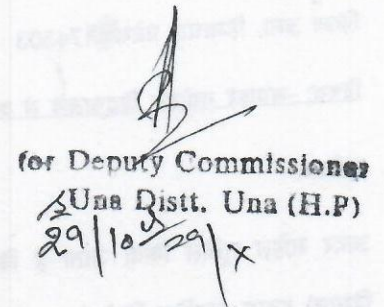 for Deputy Commissioner
Una Distt. Una (H.P)
29/10 29/x